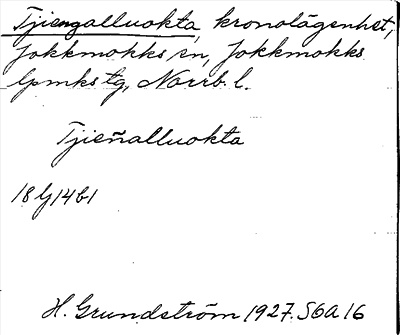 Tjiengalluokta, kronolägenhet,
Jokkmokks sn, Jokkmokks
lpmks tg, Norrb. l.
Tjieñalluokta
18 Ij 14 b1
H. Grundström 1927. S6a 16